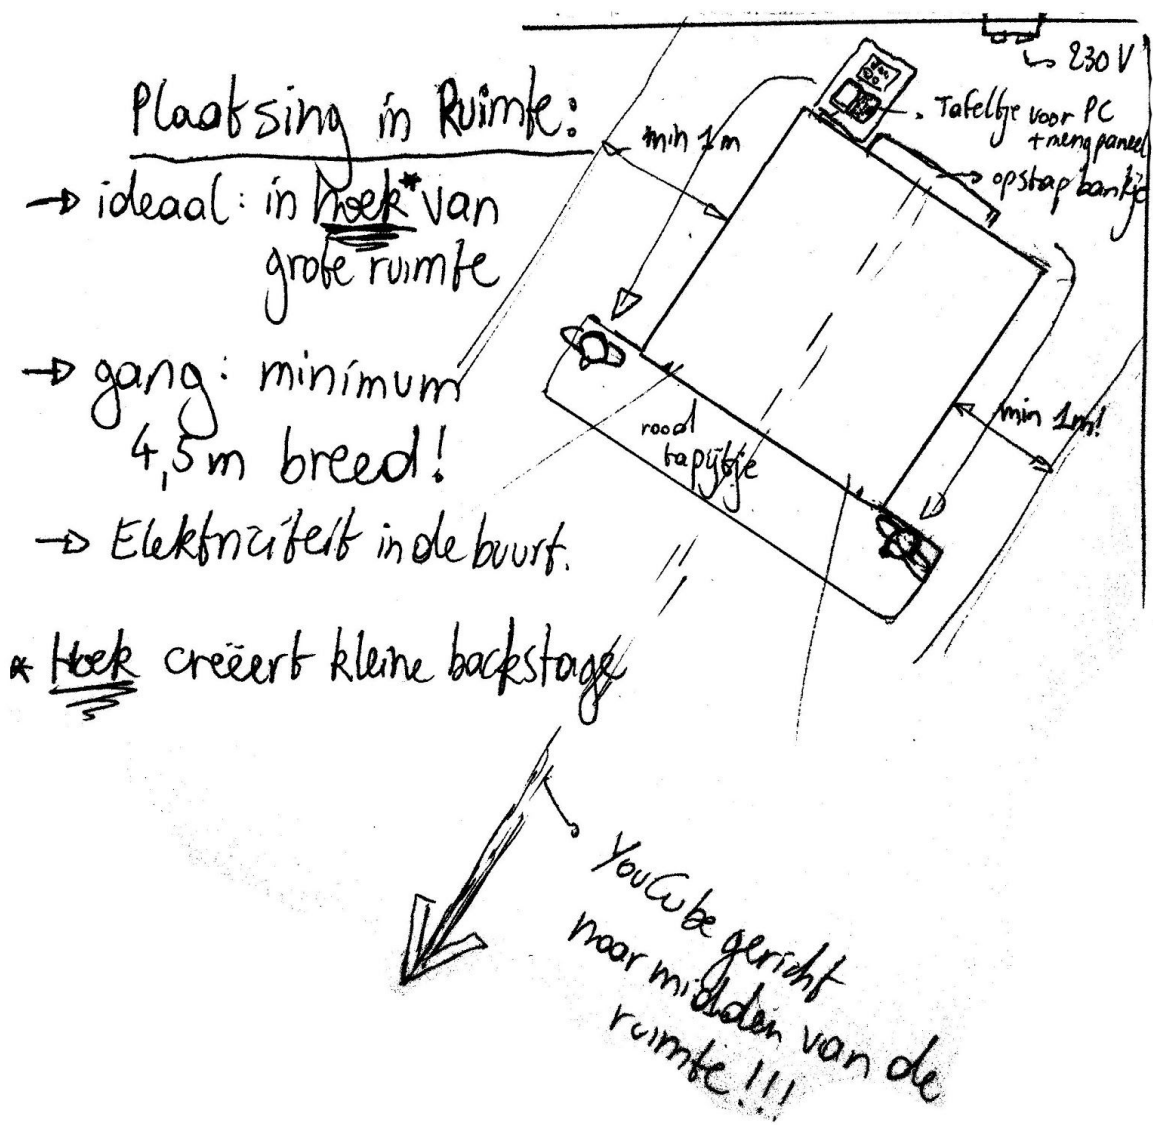 Plaatsing in Ruimte:
→ ideaal: in hoek* van
grote ruimte
→ gang: minimum
4,5m breed!
→ Elektriciteit in de buurt.
* Hoek creëert kleine backstage
230 V
Tafeltje voor PC
+ mengpaneel
opstapbankje
min 1m
min 1m!
rood
tapijtje
YouCube gericht
naar midden van de
ruimte!!!